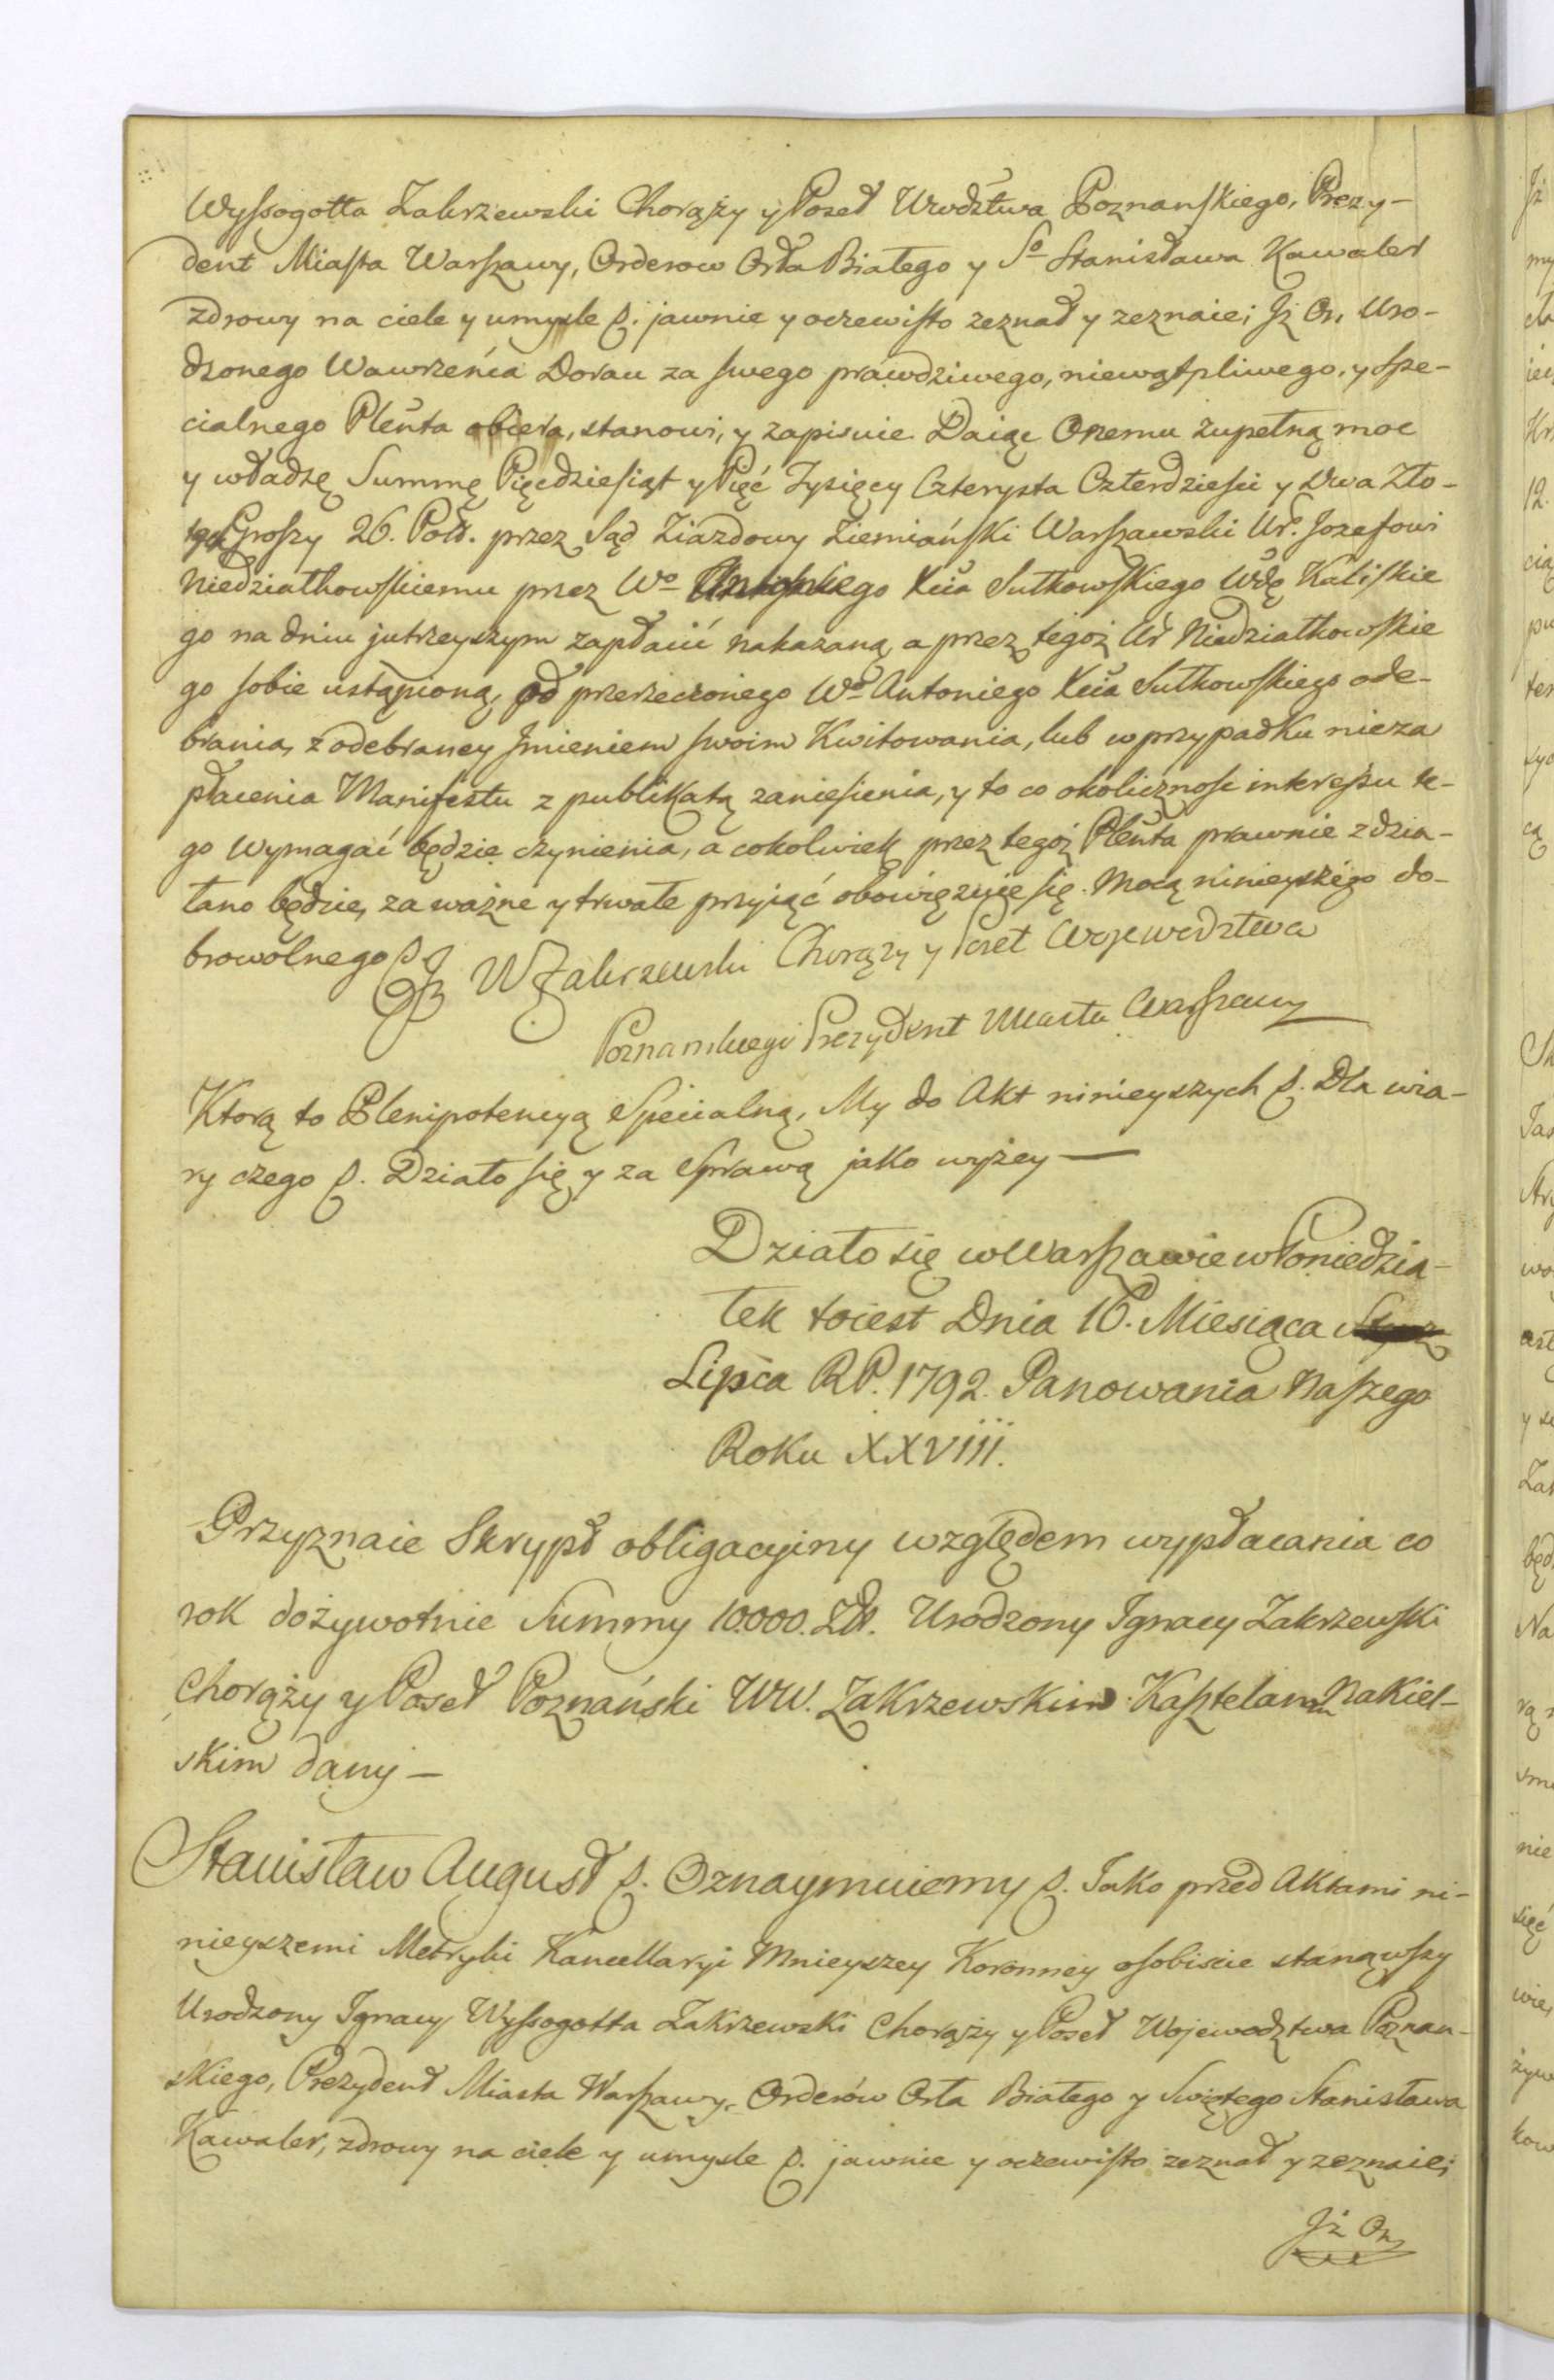 Wyssogotta Zakrzewski Chorąży y Poseł Wwdztwa Poznanskiego, Prezy-
dent Miasta Warszawy, Orderow Orła Białego y So Stanisława Kawaler
zdrowy na ciele y umysle p. jawnie y oczewisto zeznał y zeznaie; Jż On, Uro-
dzonego Wawrzeńca Dorau za swego prawdziwego, niewątpliwego, y spe-
cialnego Plenta obiera, stanowi, y zapisuie. Daiąc Onemu zupełną moc
y władzę Summę Pięcdziesiąt y Pięć Tysięcy Czterysta Czterdziesci y Dwa Zło-
tych Groszy 26. Pols. przez Sąd Ziazdowy Ziemiański Warszawski Ur. Jozefowi
Niedziałkowskiemu przez Wo Xcia Sułkowskiego Wdę Kaliskie
go na dniu jutrzeyszym zapłacić nakazaną, a przez tegoż Ur Niedziałkowskie
go sobie ustąpioną, od przerzeczonego Wo Antoniego Xcia Sułkowskiego ode-
brania, z odebraney Jmieniem swoim Kwitowania, lub w przypadku nieza
płacenia Manifestu z publikatą zaniesienia, y to co okolicznosc interessu te-
go wymagać będzie czynienia, a cokolwiek przez tegoż Plenta prawnie zdzia-
łano będzie, za ważne y trwałe przyiąć obowięzuie się. Mocą ninieyszégo do-
browolnego p
W Zakrzewski Chorąży y Poseł Województwa
Poznanskiego Prezydent Miasta Warszawy
Ktorą to Plenipotencyą Specialną, My do Akt ninieyszych p. Dla wia-
ry czego p. Działo się y za Sprawą jako wyżey —
Działo się w Warszawie w Poniedzia-
łek toiest Dnia 16. Miesiąca
Lipca RP. 1792. Panowania Naszego
Roku XXVIII.
Przyznaie Skrypt obligacyiny względem wypłacania co
rok dożywotnie Summy 10.000. Zł. Urodzony Ignacy Zakrzewski
Chorąży y Poseł Poznański WW. Zakrzewskim Kasztelanm Nakiel-
skim dany —
Stanisław August p. Oznaymuiemy p. Jako przed Aktami ni-
nieyszemi Metryki Kancellaryi Mnieyszey Koronney osobiscie stanąwszy
Urodzony Ignacy Wyssogotta Zakrzewski Chorąży y Poseł Wojewodztwa Poznan-
skiego, Prezydent Miasta Warszawy, Orderów Orła Białego y Swiętego Stanisława
Kawaler, zdrowy na ciele y umysle p. jawnie y oczewisto zeznał y zeznaie;
Jż On,